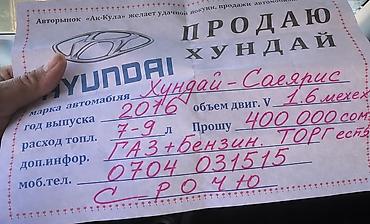 Авторынок "Ак-Кула" желает удачной покупки, продажи автомобиля
ПРОДАЮ
ХУНДАЙ
HYUNDAI
марка автомабиля Хундай-Саеярис
год выпуска 2016 объем двиг. V 1.6 мехех
расход топл. 7-9 л Прошу 400 000 сом
доп.инфор. ГАЗ+Бензин. ТОРГ есть
моб.тел. 0704 031515
СРОЧЮ